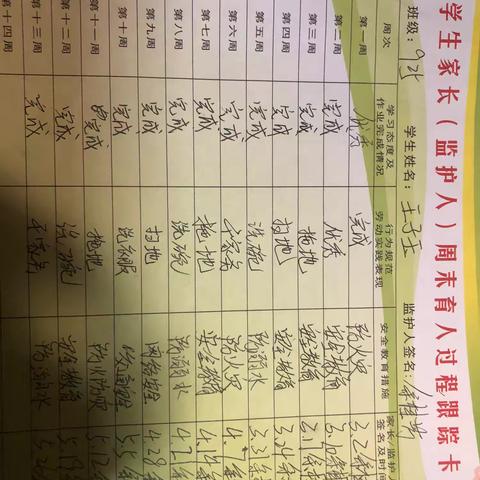 学生家长（监护人）周末育人过程跟踪卡
班级：925 学生姓名： 监护人签名：
周次 学习态度及作业完成情况 行为规范劳动实践表现 安全教育措施 家长（监护人）签名及时间
第一周 优秀 完成 防火灾 3.2
第二周 完成 优秀 安全教育 3.10
第三周 完成 拖地 安全教育 3.1
第四周 完成 扫地 安全教育 3.24
第五周 完成 洗碗 防溺水 3.31
第六周 完成 干家务 防火灾 4.7
第七周 完成 拖地 安全教育 4.14
第八周 完成 洗碗 防溺水 4.21
第九周 完成 扫地 网络安全 4.28
第十周 完成 洗衣服 交通安全 5.5
第十一周 已完成 拖地 防火防灾 5.12
第十二周 完成 洗碗 安全教育 5.19
第十三周 完成 干家务 防溺水 5.2
第十四周